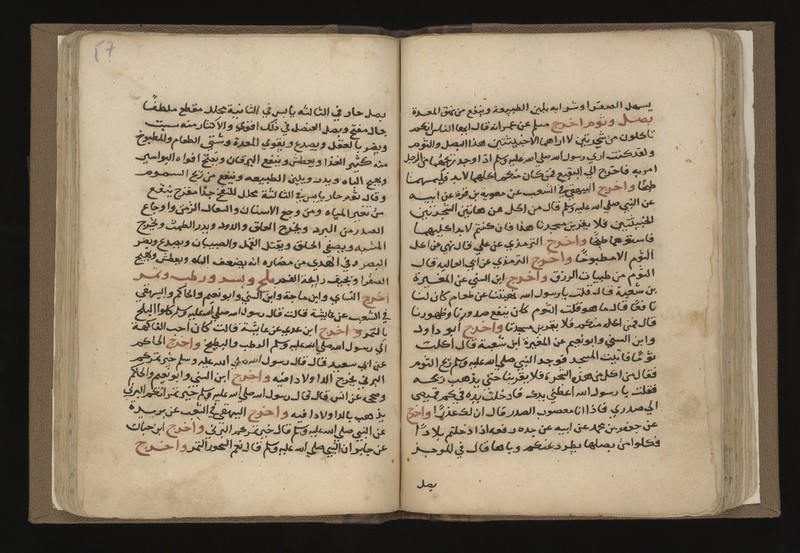 يسهل الصفرا وشرابه يلين الطبيعة وينفع من المعدة
بصل وثوم اخرج مسلم عن عمر انه قال ايها الناس انكم
تاكلون من شجرتين لا اراهما الا خبيثتين هذا البصل والثوم
ولقد كنت ارى رسول الله صلى الله عليه وسلم اذا وجد ريحهما من الرجل
امر به فاخرج الى البقيع فمن كان منكم اكلهما لا بد فليمتهما
طبخا واخرج البيهقي في الشعب عن معوية بن قرة عن ابيه
عن النبي صلى الله عليه وسلم قال من اكل من هاتين الشجرتين
الخبيثتين فلا يقربن مسجدنا هذا فان كنتم لا بد اكليهما
فاميتوهما طبخا واخرج الترمذي عن علي قال نهى عن اكل
الثوم الا مطبوخا واخرج الترمذي عن ابي العالية قال
الثوم من طيبات الرزق واخرج ابن السني عن المغيرة
بن شعبة قال قلت يا رسول الله نهيتنا عن طعام كان لنا
نافعا قال ما هو قلت الثوم كان ينفع صدورنا وظهورنا
قال فمن اكله منكم فلا يقربن مسجدنا واخرج ابو داود
وابن السني وابو نعيم عن المغيرة ابن شعبة قال اكلت
ثوما فاتيت المسجد فوجد النبي صلى الله عليه وسلم ريح الثوم
فقال من اكل من هذه الشجرة فلا يقربنا حتى يذهب ريحه
فقلت يا رسول الله اعطني يدك فادخلت يده في كم قميصي
الى صدري فاذا انا معصوب الصدر قال ان لك عذرا واخرج
عن جعفر بن محمد عن ابيه عن جده رفعه اذا دخلتم بلادا
فكلوا من بصلها يطرد عنكم وباها قال في الموجز
بصل
٢٧
بصل حار في الثالثة يابس في الثانية يحلل مقطع ملطف
جال مفتح وبصل العنصل في ذلك اقوى والاكثار منه
ويضر بالعقل ويصدع ويقوي المعدة وشهي الطعام والمطبوخ
منه كثير الغذا ويعطش وينفع اليرقان ويفتح افواه البواسير
ويهيج الباه ويدر ويلين الطبيعه وينفع من ريح السموم
وقال ثوم حار يابس في الثالثة محلل للنفخ جدا مقرح ينفع
من تغير المياه ومن وجع الاسنان والسعال الزمن واوجاع
الصدر من البرد ويخرج العلق والدود ويدر الطمث ويخرج
المشيمه ويصفي الحلق ويقتل القمل والصيبان ويصدع ويضر
البصر وفي الهدي من مضاره انه يضعف الباه ويعطش ويهيج
الصفرا ويجيف رايحة الفم بلح وبسر ورطب وتمر
اخرج النساي وابن ماجة وابن السني وابو نعيم والحاكم والبيهقي
في الشعب عن عايشة قالت قال رسول الله صلى الله عليه وسلم كلوا البلح
بالتمر واخرج ابن عدي عن عايشة قالت كان احب الفاكهة
الى رسول الله صلى الله عليه وسلم الرطب والبطيخ واخرج الحاكم
عن ابي سعيد قال قال رسول الله صلى الله عليه وسلم خير تمركم
البرني يخرج الدا ولا دا فيه واخرج ابن السني وابو نعيم والحاكم
وصححه عن انس قال قال رسول الله صلى الله عليه وسلم خير تمراتكم البرني
يذهب بالدا ولا دا فيه واخرج البيهقي في الشعب عن بريدة
عن النبي صلى الله عليه وسلم قال خير تمركم البرني واخرج ابن حبان
عن جابر ان النبي صلى الله عليه وسلم قال نعم السحور التمر واخرج